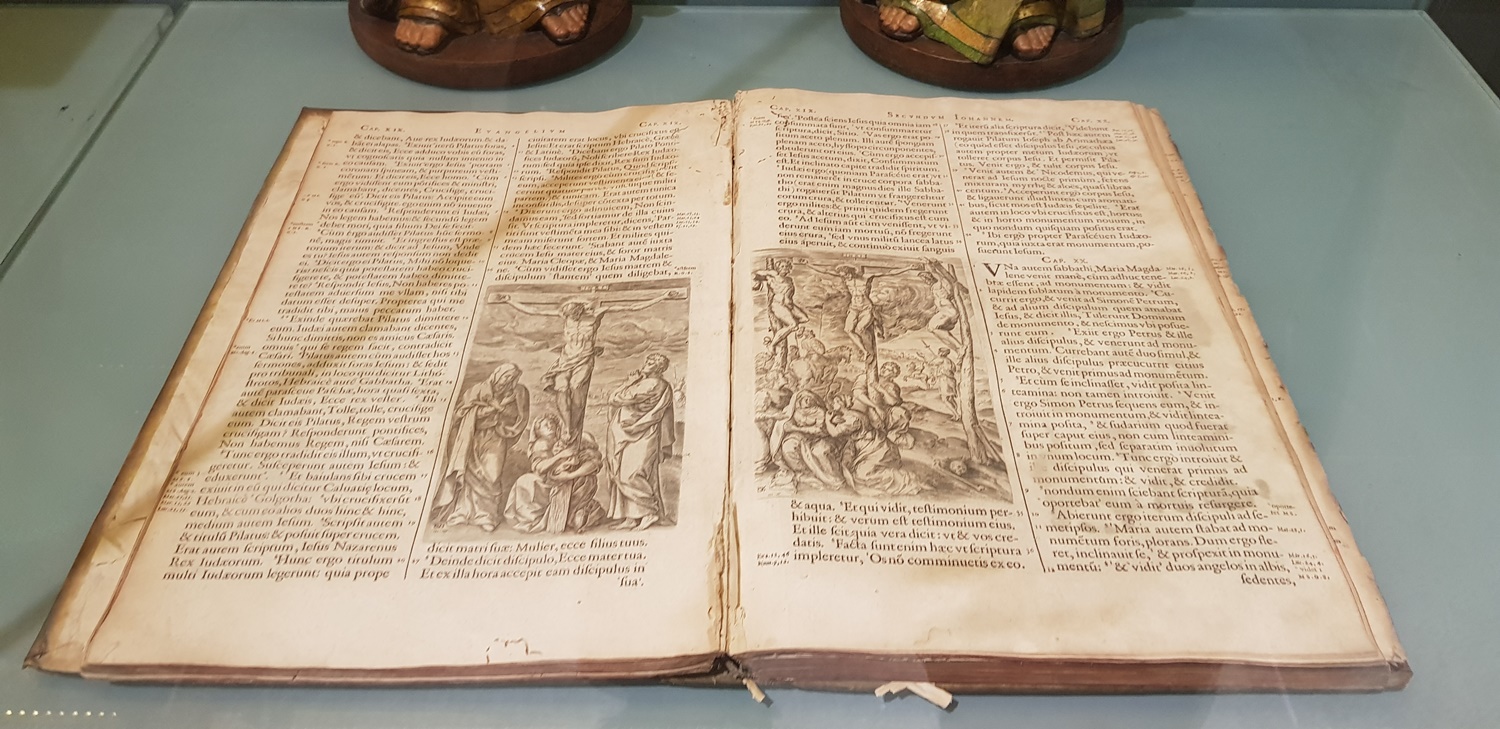 CAP. XIX.
EVANGELIVM
CAP. XIX.
& dicebant, Aue rex Iudæorum: & da-
bant ei alapas. Exiuit iterū Pilatus foras,
& dicit eis, Ecce adduco vobis eū foras,
coronam spineam, & purpureum vesti-
ergo vidissent eum pontifices & ministri,
clamabant, dicentes, Crucifige, crucifi-
ge eū. Dicit eis Pilatus: Accipite eum
vos, & crucifigite: ego enim nō inuenio
in eo causam. Responderunt ei Iudæi,
Nos legem habemus: & secundū legem
debet mori, quia filium Dei se fecit.
Cùm ergo audisset Pilatus hunc sermo-
nē, magis timuit. Et ingressus est præ-
torium iterum: & dicit ad Iesum, Vnde
es tu? Iesus autem responsum nō dedit
ei. Dicit ergo ei Pilatus, Mihi nō loque-
ris: nescis quia potestatem habeo cruci-
figere te, & potestatem habeo dimittere
te? Respondit Iesus, Non haberes po-
testatem aduersum me vllam, nisi tibi
datum esset desuper. Propterea qui me
tradidit tibi, maius peccatum habet.
Exinde quærebat Pilatus dimittere
eum. Iudæi autem clamabant dicentes,
Si hunc dimittis, non es amicus Cæsaris.
omnis qui se regem facit, contradicit
Cæsari. Pilatus autem cùm audisset hos
sermones, adduxit foras Iesum: & sedit
pro tribunali, in loco qui dicitur Lithó-
strotos, Hebraicè autē Gabbatha. Erat
autē parasceue Pascha, hora quasi sexta,
& dicit Iudæis, Ecce rex vester. Illi
autem clamabant, Tolle, tolle, crucifige
eum. Dicit eis Pilatus, Regem vestrum
crucifigam? Responderunt pontifices,
Non habemus Regem, nisi Cæsarem.
Tunc ergo tradidit eis illum, vt crucifi-
geretur. Susceperunt autem Iesum: &
eduxerunt. Et baiulans sibi crucem
exiuit in eū qui dicitur Caluariæ locum,
Hebraicè Golgotha: vbi crucifixerūt
eum, & cum eo alios duos hinc & hinc,
medium autem Iesum. Scripsit autem
& titulū Pilatus: & posuit super crucem.
Erat autem scriptum, Iesus Nazarenus
Rex Iudæorum. Hunc ergo titulum
multi Iudæorum legerunt: quia prope
ciuitatem erat locus, vbi crucifixus est
Iesus. Et erat scriptum Hebraicè, Græcè,
& Latinè. Dicebant ergo Pilato Ponti-
fices Iudæorū, Noli scribere Rex Iudæo-
sit. Vt scriptura impleretur, dicens, Par-
titi sunt vestimēta mea sibi: & in vestem
meam miserunt sortem. Et milites qui-
dem hæc fecerunt. Stabant autē iuxta
crucem Iesu mater eius, & soror matris
eius Maria Cleopæ, & Maria Magdale-
ne. Cùm vidisset ergo Iesus matrem &
discipulum stantem quem diligebat,
dicit matri suæ: Mulier, ecce filius tuus.
Deinde dicit discipulo, Ecce mater tua.
Et ex illa hora accepit eam discipulus in
sua.
CAP. XIX.
SECVNDVM IOHANNEM.
CAP. XX.
Postea sciens Iesus quia omnia iam
consummata sunt, vt consummaretur
scriptura, dicit, Sitio. Vas ergo erat po-
situm aceto plenum. Illi autē spongiam
set Iesus acetum, dixit, Consummatum
est. Et inclinato capite tradidit spiritum.
Iudæi ergo (quoniam Parasceue erat) vt
non remanerēt in cruce corpora sabba-
tho (erat enim magnus dies ille Sabba-
thi) rogauerūt Pilatum vt frangerentur
eorum crura, & tollerentur. Venerunt
ergo milites: & primi quidem fregerunt
crura, & alterius qui crucifixus est cum
eo. Ad Iesum aūt cùm venissent, vt vi-
derunt eum iam mortuū, nō fregerunt
eius crura, sed vnus militū lancea latus
eius aperuit, & continuò exiuit sanguis
& aqua. Et qui vidit, testimonium per-
hibuit: & verum est testimonium eius.
Et ille scit quia vera dicit: vt & vos cre-
datis. Facta sunt enim hæc vt scriptura
impleretur, Os nō comminuetis ex eo.
Et iterū alia scriptura dicit, Videbunt
in quem transfixerūt. Post hæc autem
rogauit Pilatum Ioseph ab Arimathæa
tolleret corpus Iesu. Et permisit Pila-
tus. Venit ergo, & tulit corpus Iesu.
Venit autem & Nicodemus, qui ve-
nerat ad Iesum nocte primùm, ferens
mixturam myrrhę & aloes, quasi libras
centum. Acceperunt ergo corpus Iesu,
& ligauerunt illud linteis cum aromati-
bus, sicut mos est Iudæis sepelire. Erat
autem in loco vbi crucifixus est, hortus:
& in horto monumentum nouum, in
quo nondum quisquam positus erat.
Ibi ergo propter Parasceuen Iudæo-
rum, quia iuxta erat monumentum, po-
suerunt Iesum.
CAP. XX.
VNa autem sabbathi, Maria Magda-
lene venit manè, cùm adhuc tene-
bræ essent, ad monumentum: & vidit
lapidem sublatum à monumento. Cu-
currit ergo, & venit ad Simonē Petrum,
& ad alium discipulum quem amabat
Iesus, & dicit illis, Tulerunt Dominum
de monumento, & nescimus vbi posue-
runt eum. Exiit ergo Petrus & ille
alius discipulus, & venerunt ad monu-
mentum. Currebant autē duo simul, &
ille alius discipulus præcucurrit citius
Petro, & venit primus ad monumētum.
Et cùm se inclinasset, vidit posita lin-
teamina: non tamen introiuit. Venit
ergo Simon Petrus sequens eum, & in-
troiuit in monumentum, & vidit lintea-
mina posita, & sudarium quod fuerat
super caput eius, non cum linteamini-
bus positum, sed separatim inuolutum
in vnum locum. Tunc ergo introiuit &
discipulus qui venerat primus ad
monumentum: & vidit, & credidit.
nondum enim sciebant scripturā, quia
oportebat eum à mortuis resurgere.
Abierunt ergo iterum discipuli ad se-
metipsos. Maria autem stabat ad mo-
numētum foris, plorans. Dum ergo fle-
ret, inclinauit se, & prospexit in monu-
mentū: & vidit duos angelos in albis,
sedentes,